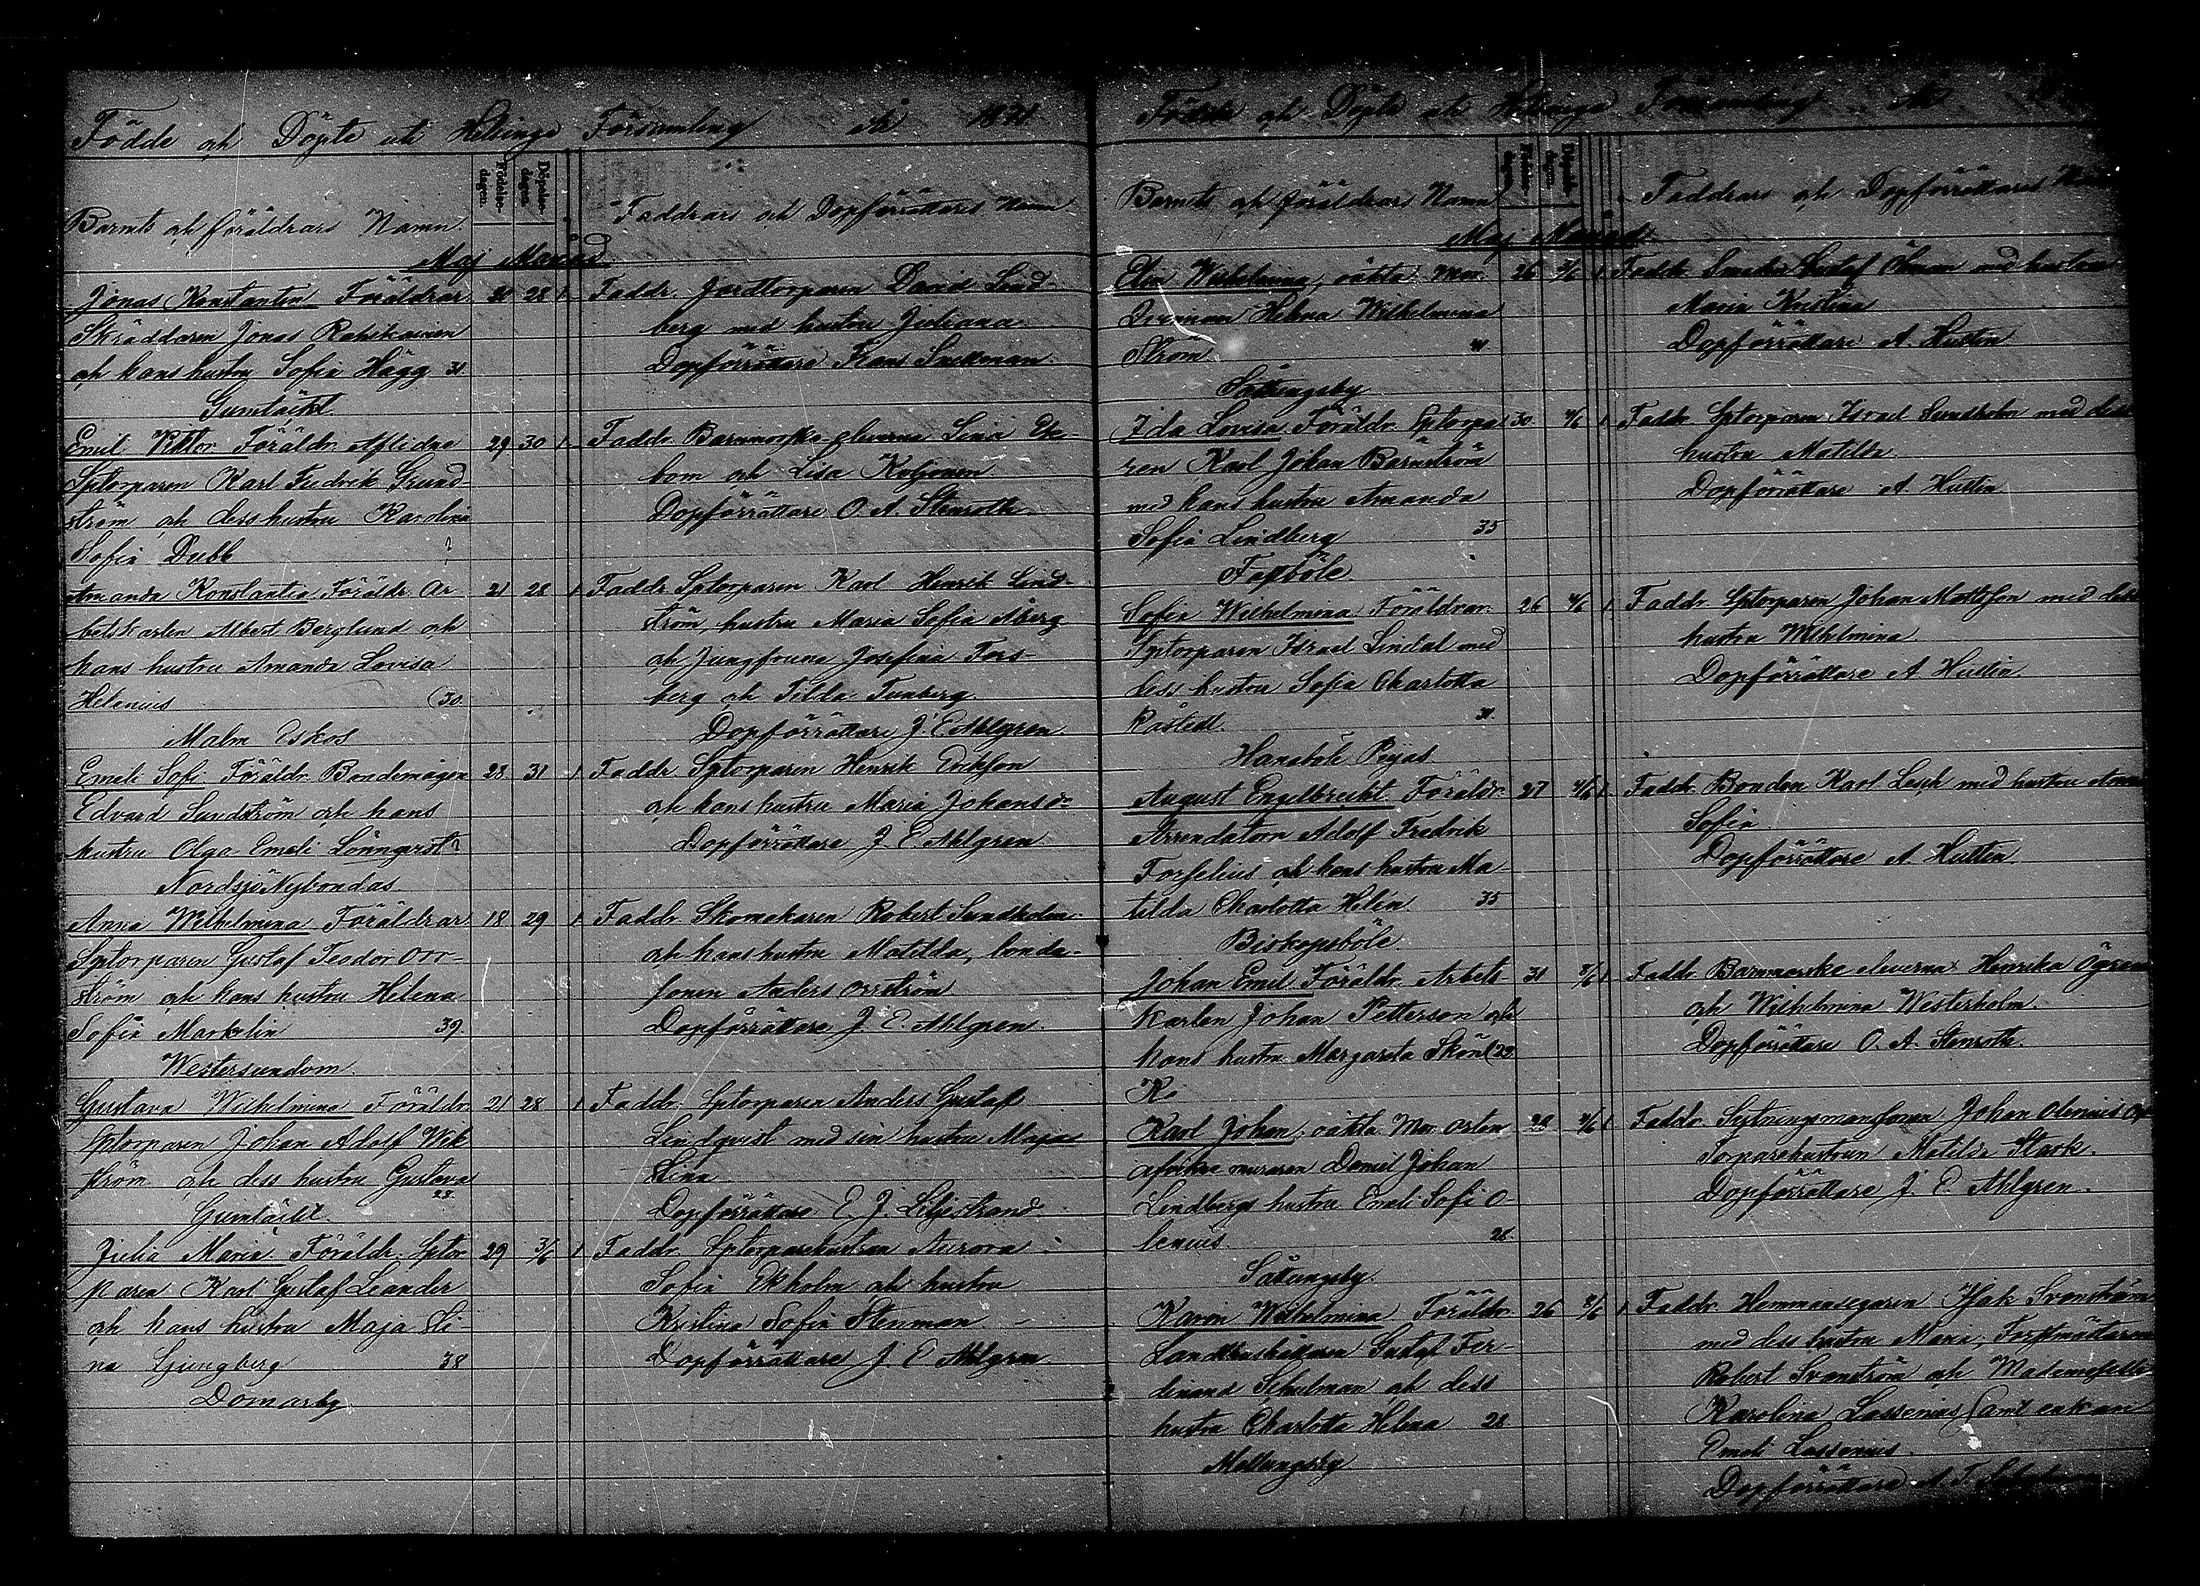 Födde och Döpte uti Helsinge Församling År 1871
Barnets och föräldrars Namn.
Födelse-dagen.
Döpelse-dagen.
Faddrars och Dopförrättares Namn
Maj Månad
Jonas Konstantin Föräldrar 20 28 1 Faddr. Jordtorparen David Lind-
Skräddaren Jonas berg med hustru Juliana
och hans hustru Sofia Hägg 31 Dopförrättare Frans
Gumtäckt
Emil Viktor Föräldr. Aflidne 29 30 1 Faddr. Barnmorske eleverna Lina Ek-
Sptorparen Karl Fredrik Grund- bom och Lisa
ström och dess hustru Karolina Dopförrättare O. A. Stenroth
Sofia Dubb ?
Amanda Konstantia Föräldr. Ar- 21 28 1 Faddr. Sptorparen Karl Henrik Lind-
betskarlen Albert Berglund och ström, hustru Maria Sofia Åberg
hans hustru Amanda Lovisa och Jungfruna Josefina Fors-
Helenius (30. berg och Tilda Tunberg.
Malm Eskos Dopförrättare J. E. Ahlgren
Emeli Sofi Föräldr. Bondemågen 28 31 1 Faddr. Sptorparen Henrik Erikson
Edvard Sundström och hans och hans hustru Maria Johansdr
hustru Olga Emeli Lönnqvist ? Dopförrättare J. E. Ahlgren
Nordsjö Nybondas.
Anna Wilhelmina Föräldrar 18 29 1 Faddr. Skomakaren Robert Sundholm
Sptorparen Gustaf Teodor Orr- och hans hustru Matilda, bonde-
ström och hans hustru Helena sonen Anders Orrström
Sofia Markelin 39. Dopförrättare J. E. Ahlgren.
Westersundom.
Gustava Wilhelmina Föräldr. 21 28 1 Faddr. Sptorparen Anders Gustaf
Sptorparen Johan Adolf Wik- Lindqvist med sin hustru Maja
ström och dess hustru Gustava 23. Stina
Gumtäckt. Dopförrättare E. J. Liljestrand
Julia Maria Föräldr. Sptor- 29 3/6 1 Faddr. Sptorparehustrun Aurora
paren Karl Gustaf Leander Sofia Ekholm och hustru
och hans hustru Maja Sti- Kristina Sofia Stenman
na Ljungberg 38 Dopförrättare J. E. Ahlgren
Domarby
Födde och Döpte uti Helsinge Församling År
Barnets och föräldrars Namn
Faddrars och Dopförrättares Namn
Maj Månad.
Wilhelmina, oäkta Mor. 26 1 Faddr. Smeden Gustaf Öhman med hustru
Helena Wilhelmina Maria Kristina
Ström 41 Dopförrättare A. Hultin
Sottungsby
Ida Lovisa Föräldr. Sptorpa- 30 4/6 1 Faddr. Sptorparen Israel Sundholm med dess
ren Karl Johan Barnström hustru Matilda
med hans hustru Amanda Dopförrättare A. Hultin
Sofia Lindberg 35
Fastböle.
Sofia Wilhelmina Föräldrar. 26 4/6 1 Faddr. Sptorparen Johan Mattsson med dess
Sptorparen Israel Lindal med hustru Wilhelmina
dess hustru Sofia Charlotta Dopförrättare A. Hultin
31
Hanaböle Peijas
August Engelbrecht Föräldr. 27 4/6 1 Faddr. Bonden Karl Lesch med hustru Anna
Arrendatorn Adolf Fredrik Sofia
Forselius och hans hustru Ma- Dopförrättare A. Hultin
tilda Charlotta Helin 35
Biskopsböle
Johan Emil Föräldr. Arbets- 31 1 Faddr. Barnmorske eleverna Henrika
karlen Johan Petterson och och Wilhelmina Westerholm.
hans hustru Margareta Sköld (29. Dopförrättare O. A. Stenroth.
K.
Karl Johan, oäkta Mor 28 4/6 1 Faddr. Sytningsmansonen Johan Olenius och
muraren Johan Torparehustrun Matilda Stark.
Lindbergs hustru Emeli Sofi O- Dopförrättare J. E. Ahlgren.
lenius. 28.
Sottungsby.
Karin Wilhelmina Föräldr. 26 1 Faddr. Hemmansegaren Isak Svanström
Gustaf Fer- med dess hustru Maria, Forstmästaren
dinand Schulman och dess Robert Svanström och Mademoiselle
hustru Charlotta Helena 28 Karolina Lassenius samt enkan
Mellungsby Emeli Lassenius.
Dopförrättare A. F.